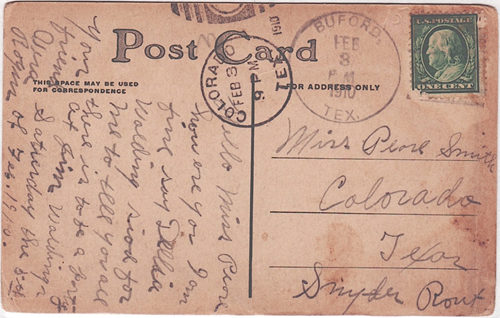 Post Card
THIS SPACE MAY BE USED
FOR CORRESPONDENCE
FOR ADDRESS ONLY
COLORADO
FEB 3
9 PM
TEX
1910
BUFORD,
FEB
3
PM
1910
TEX.
U.S. POSTAGE
ONE CENT
Hello Miss Pearl
how are you I am
fine say Dellia
Walding said for
me to tell you all
there is to be a party
at Jim Walding
Saturday the 5th
of Feb. 1910.
your
friend
Miss Pearl Smith
Colorado
Texas
Snyder Rout